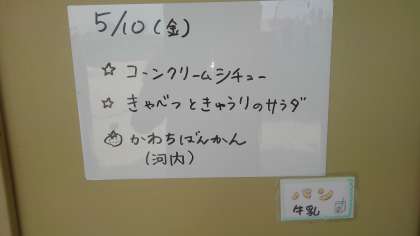 5/10(金)
☆ コーンクリームシチュー
☆ きゃべつときゅうりのサラダ
かわちばんかん
(河内)
パン
牛乳